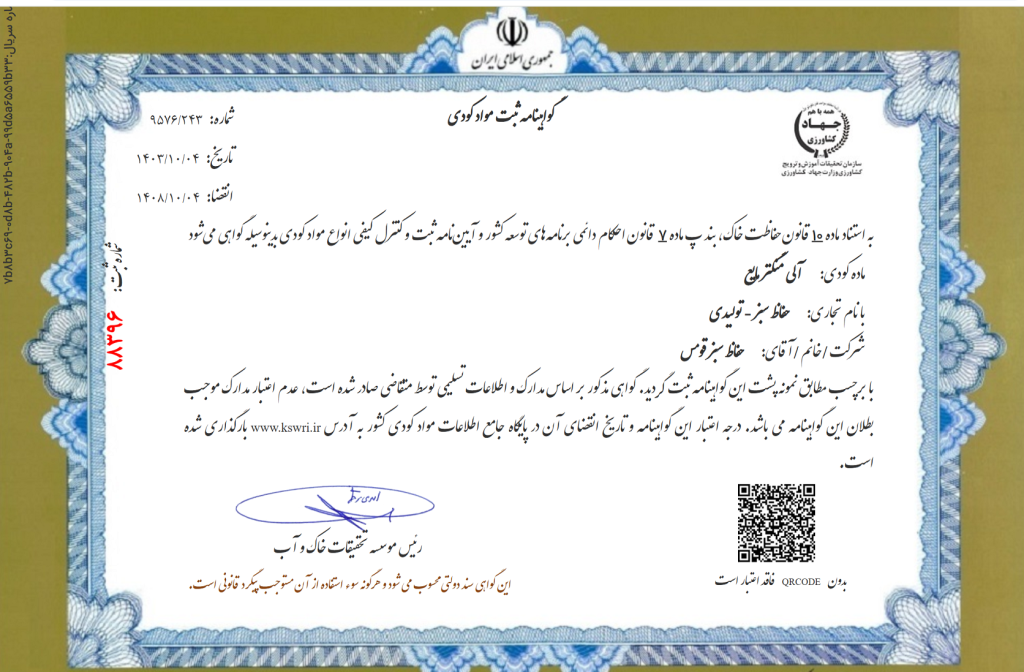 جمهوری اسلامی ایران
همه با هم
جهاد
کشاورزی
سازمان تحقیقات، آموزش و ترویج
کشاورزی وزارت جهاد کشاورزی
گواهینامه ثبت مواد کودی
شماره: ۹۵۷۶/۲۴۳
تاریخ: ۱۴۰۳/۱۰/۰۴
انقضا: ۱۴۰۸/۱۰/۰۴
به استناد ماده ۱۰ قانون حفاظت خاک، بند پ ماده ۷ قانون احکام دائمی برنامه های توسعه کشور و آیین نامه ثبت و کنترل کیفی انواع مواد کودی بدینوسیله گواهی می شود
ماده کودی: آلی منگنز مایع
با نام تجاری: حفاظ سبز - تولیدی
شرکت / خانم / آقای: حفاظ سبز قومس
با برچسب مطابق نمونه پشت این گواهینامه ثبت گردید. گواهی مذکور بر اساس مدارک و اطلاعات تسلیمی توسط متقاضی صادر شده است، عدم اعتبار مدارک موجب
بطلان این گواهینامه می باشد. درجه اعتبار این گواهینامه و تاریخ انقضای آن در پایگاه جامع اطلاعات مواد کودی کشور به آدرس www.kswri.ir بارگذاری شده
است.
شماره ثبت:
۸۸۳۹۶
رئیس موسسه تحقیقات خاک و آب
این گواهی سند دولتی محسوب می شود و هرگونه سوء استفاده از آن مستوجب پیگرد قانونی است.
بدون QRCODE فاقد اعتبار است